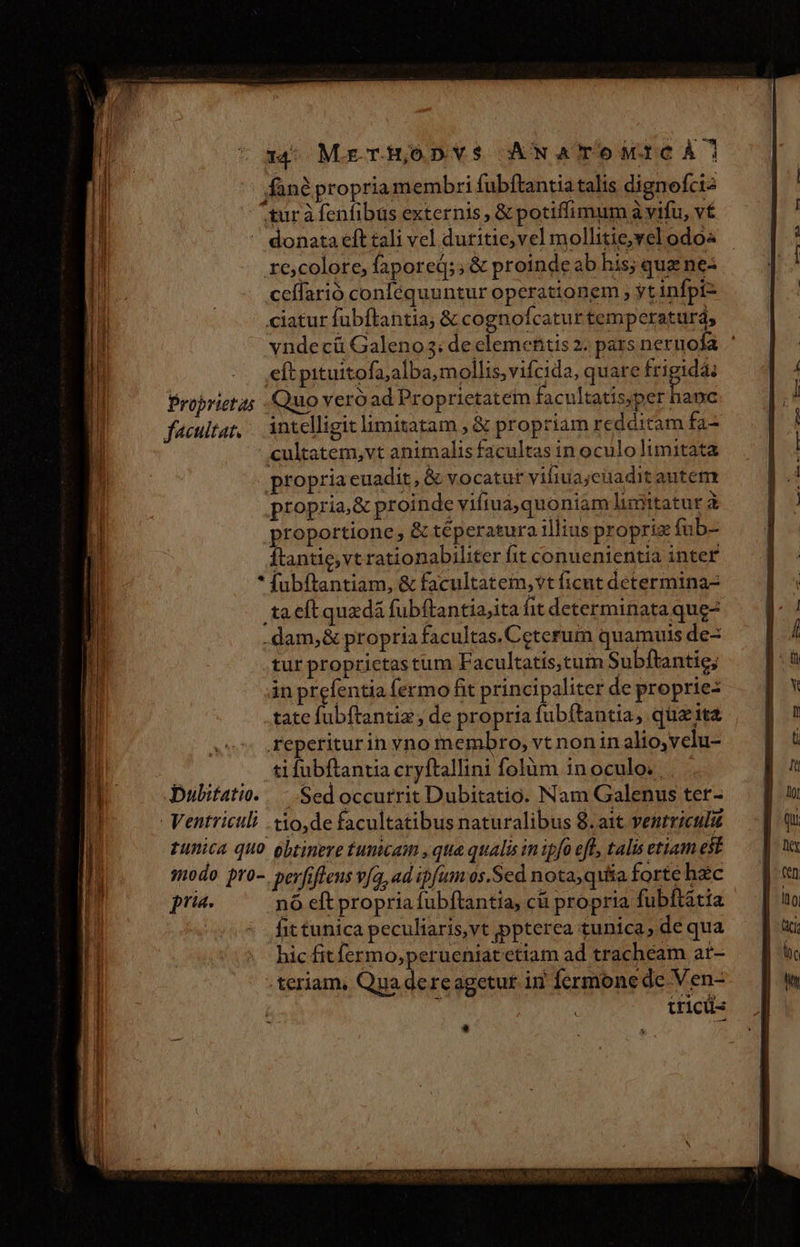 14 METHODVS ANATOMICA
sanè propria membri substantia talis dignosci-
tur à sensibus externis, & potissimum à visu, vt
donata est tali vel duritie, vel mollitie, vel odo-
re, colore, saporeq́;, & proinde ab his; quæ ne-
cessariò consequuntur operationem, vt inspi-
ciatur substantia, & cognoscatur temperatura,
vnde cũ Galeno 3. de elementis 2. pars neruosa
est pituitosa, alba, mollis, viscida, quare frigida;
Proprietas Quo verò ad Proprietatem facultatis, per hanc
facultat. intelligit limitatam, & propriam redditam fa-
cultatem, vt animalis facultas in oculo limitata
propria euadit, & vocatur visiua, euadit autem
propria, & proinde visiua, quoniam limitatur à
proportione, & tẽperatura illius propriæ sub-
stantię, vt rationabiliter fit conuenientia inter
substantiam, & facultatem, vt sicut determina-
ta est quædã substantia, ita fit determinata quę-
dam, & propria facultas. Ceterum quamuis de-
tur proprietas tum Facultatis, tum Substantię,
in pręsentia sermo fit principaliter de proprie-
tate substantiæ, de propria substantia, quæ ita
reperitur in vno membro, vt non in alio, velu-
ti substantia crystallini solùm in oculo.
Dubitatio. Sed occurrit Dubitatio. Nam Galenus ter-
Ventriculi tio, de facultatibus naturalibus 8. ait ventriculũ
tunica quo obtinere tunicam, quæ qualis in ipso est, talis etiam est
modo pro- persistens vsq, ad ipsum os. Sed nota, quia forte hæc
pria. nõ est propria substantia, cũ propria substãtia
sit tunica peculiaris, vt ꝓpterea tunica, de qua
hic fit sermo, perueniat etiam ad tracheam ar-
teriam. Qua de re agetur in sermone de Ven-
tricũ-